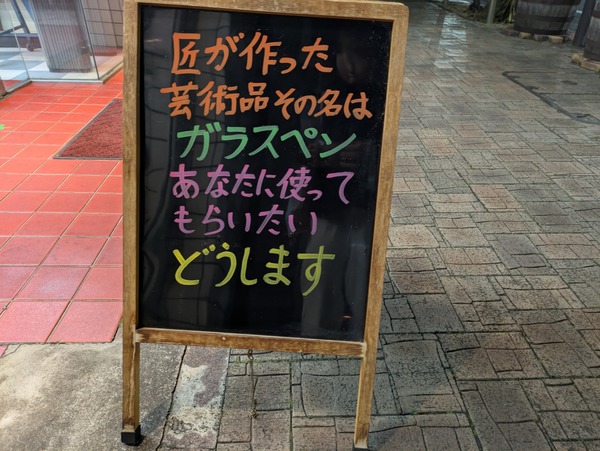 匠が作った
芸術品その名は
ガラスペン
あなたに使って
もらいたい
どうします